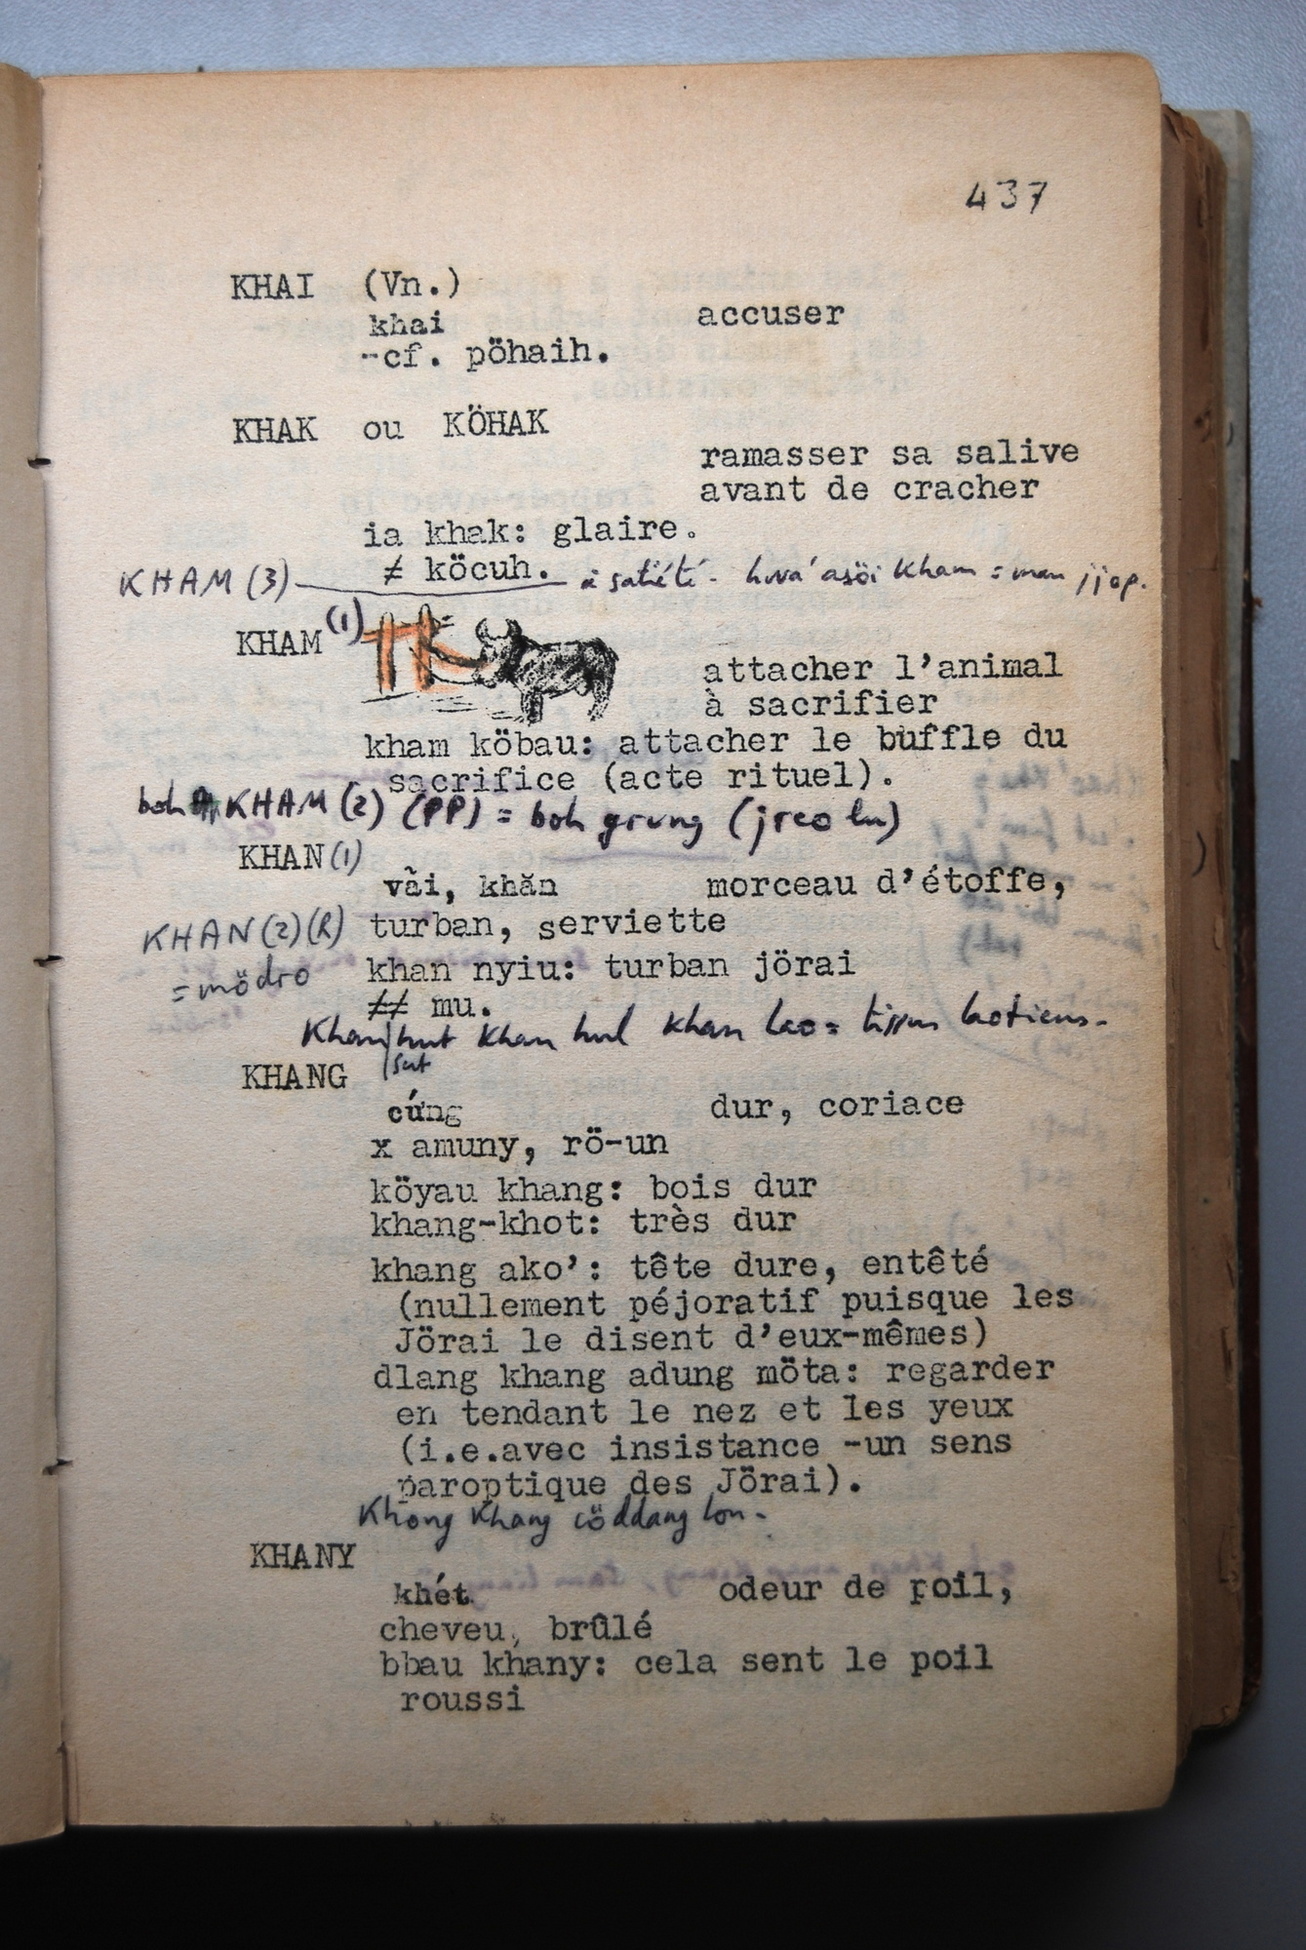 437
KHAI (Vn.)
khai accuser
-cf. pöhaih.
KHAK ou KÖHAK
ramasser sa salive
avant de cracher
ia khak: glaire.
≠ köcuh.
KHAM (3) à satiété - hơva' asöi kham = man jjop.
KHAM (1)
attacher l'animal
à sacrifier
kham köbau: attacher le buffle du
sacrifice (acte rituel).
boh KHAM (2) (PP) = boh grung (jreo lu)
KHAN (1)
vài, khăn morceau d'étoffe,
KHAN (2) (R) turban, serviette
= mödro
khan nyiu: turban jörai
≠≠ mu.
Khan hut khan hul khan lao = tissus laotiens -
sut
KHANG
cứng dur, coriace
x amuny, rö-un
köyau khang: bois dur
khang-khot: très dur
khang ako': tête dure, entêté
(nullement péjoratif puisque les
Jörai le disent d'eux-mêmes)
dlang khang adung möta: regarder
en tendant le nez et les yeux
(i.e.avec insistance -un sens
paroptique des Jörai).
Khong khang cöddang lon -
KHANY
khét odeur de poil,
cheveu, brûlé
bbau khany: cela sent le poil
roussi